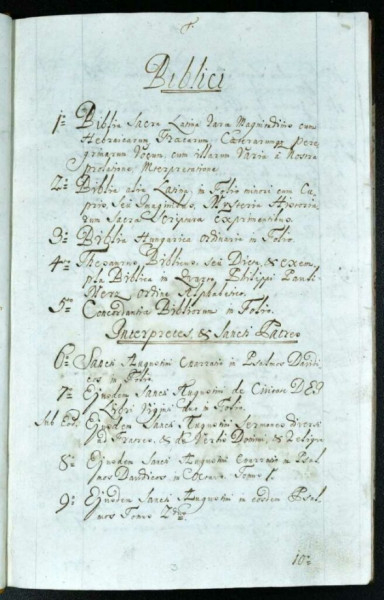 Biblici
1º Biblia Sacra Latina Rara Magnitudinis cum
Hebraicarum Graecarum, Caeterarumque Pere
grinarum Vocum, cum illarum Varia à Nostra
prolatione Interpretatione
2º Biblia alia Latina in Folio minori cum Cu
pris, seu Imaginibus, Mysteria Historia
rum Sacra Scriptura exprimentibus
3º Biblia Hungarica ordinaria in Folio
4to Thesaurus Biblicus, seu Dicta, & exem
pla Biblica in Philippi Pauli
Merz ordine Alphabetico
5to Concordantia Bibliorum in Folio
Interpretes & Sancti Patres
6º Sancti Augustini Enarratio in Psalmos Davidi
cos in Folio
7º Ejusdem Sancti Augustini de Civitate DEI
Libri Viginti duo in Folio
Sub Eod. Ejusdem Sancti Augustini Sermones diversi
ad Fratres, & de Verbis Domini, &
8º Ejusdem Sancti Augustini Enarratio in Psal
mos Davidicos, in Octavo Tomo 1
9º Ejusdem Sancti Augustini in eosdem Psal
mos Tomo 2do
10º